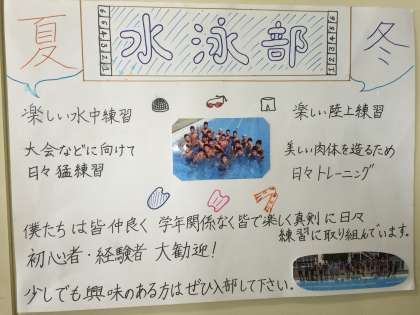 夏 水泳部 冬
楽しい水中練習
大会などに向けて
日々猛練習
楽しい陸上練習
美しい肉体を造るため
日々トレーニング
僕たちは皆仲良く 学年関係なく皆で楽しく真剣に日々
練習に取り組んでいます。
初心者・経験者 大歓迎!
少しでも興味のある方はぜひ入部して下さい。